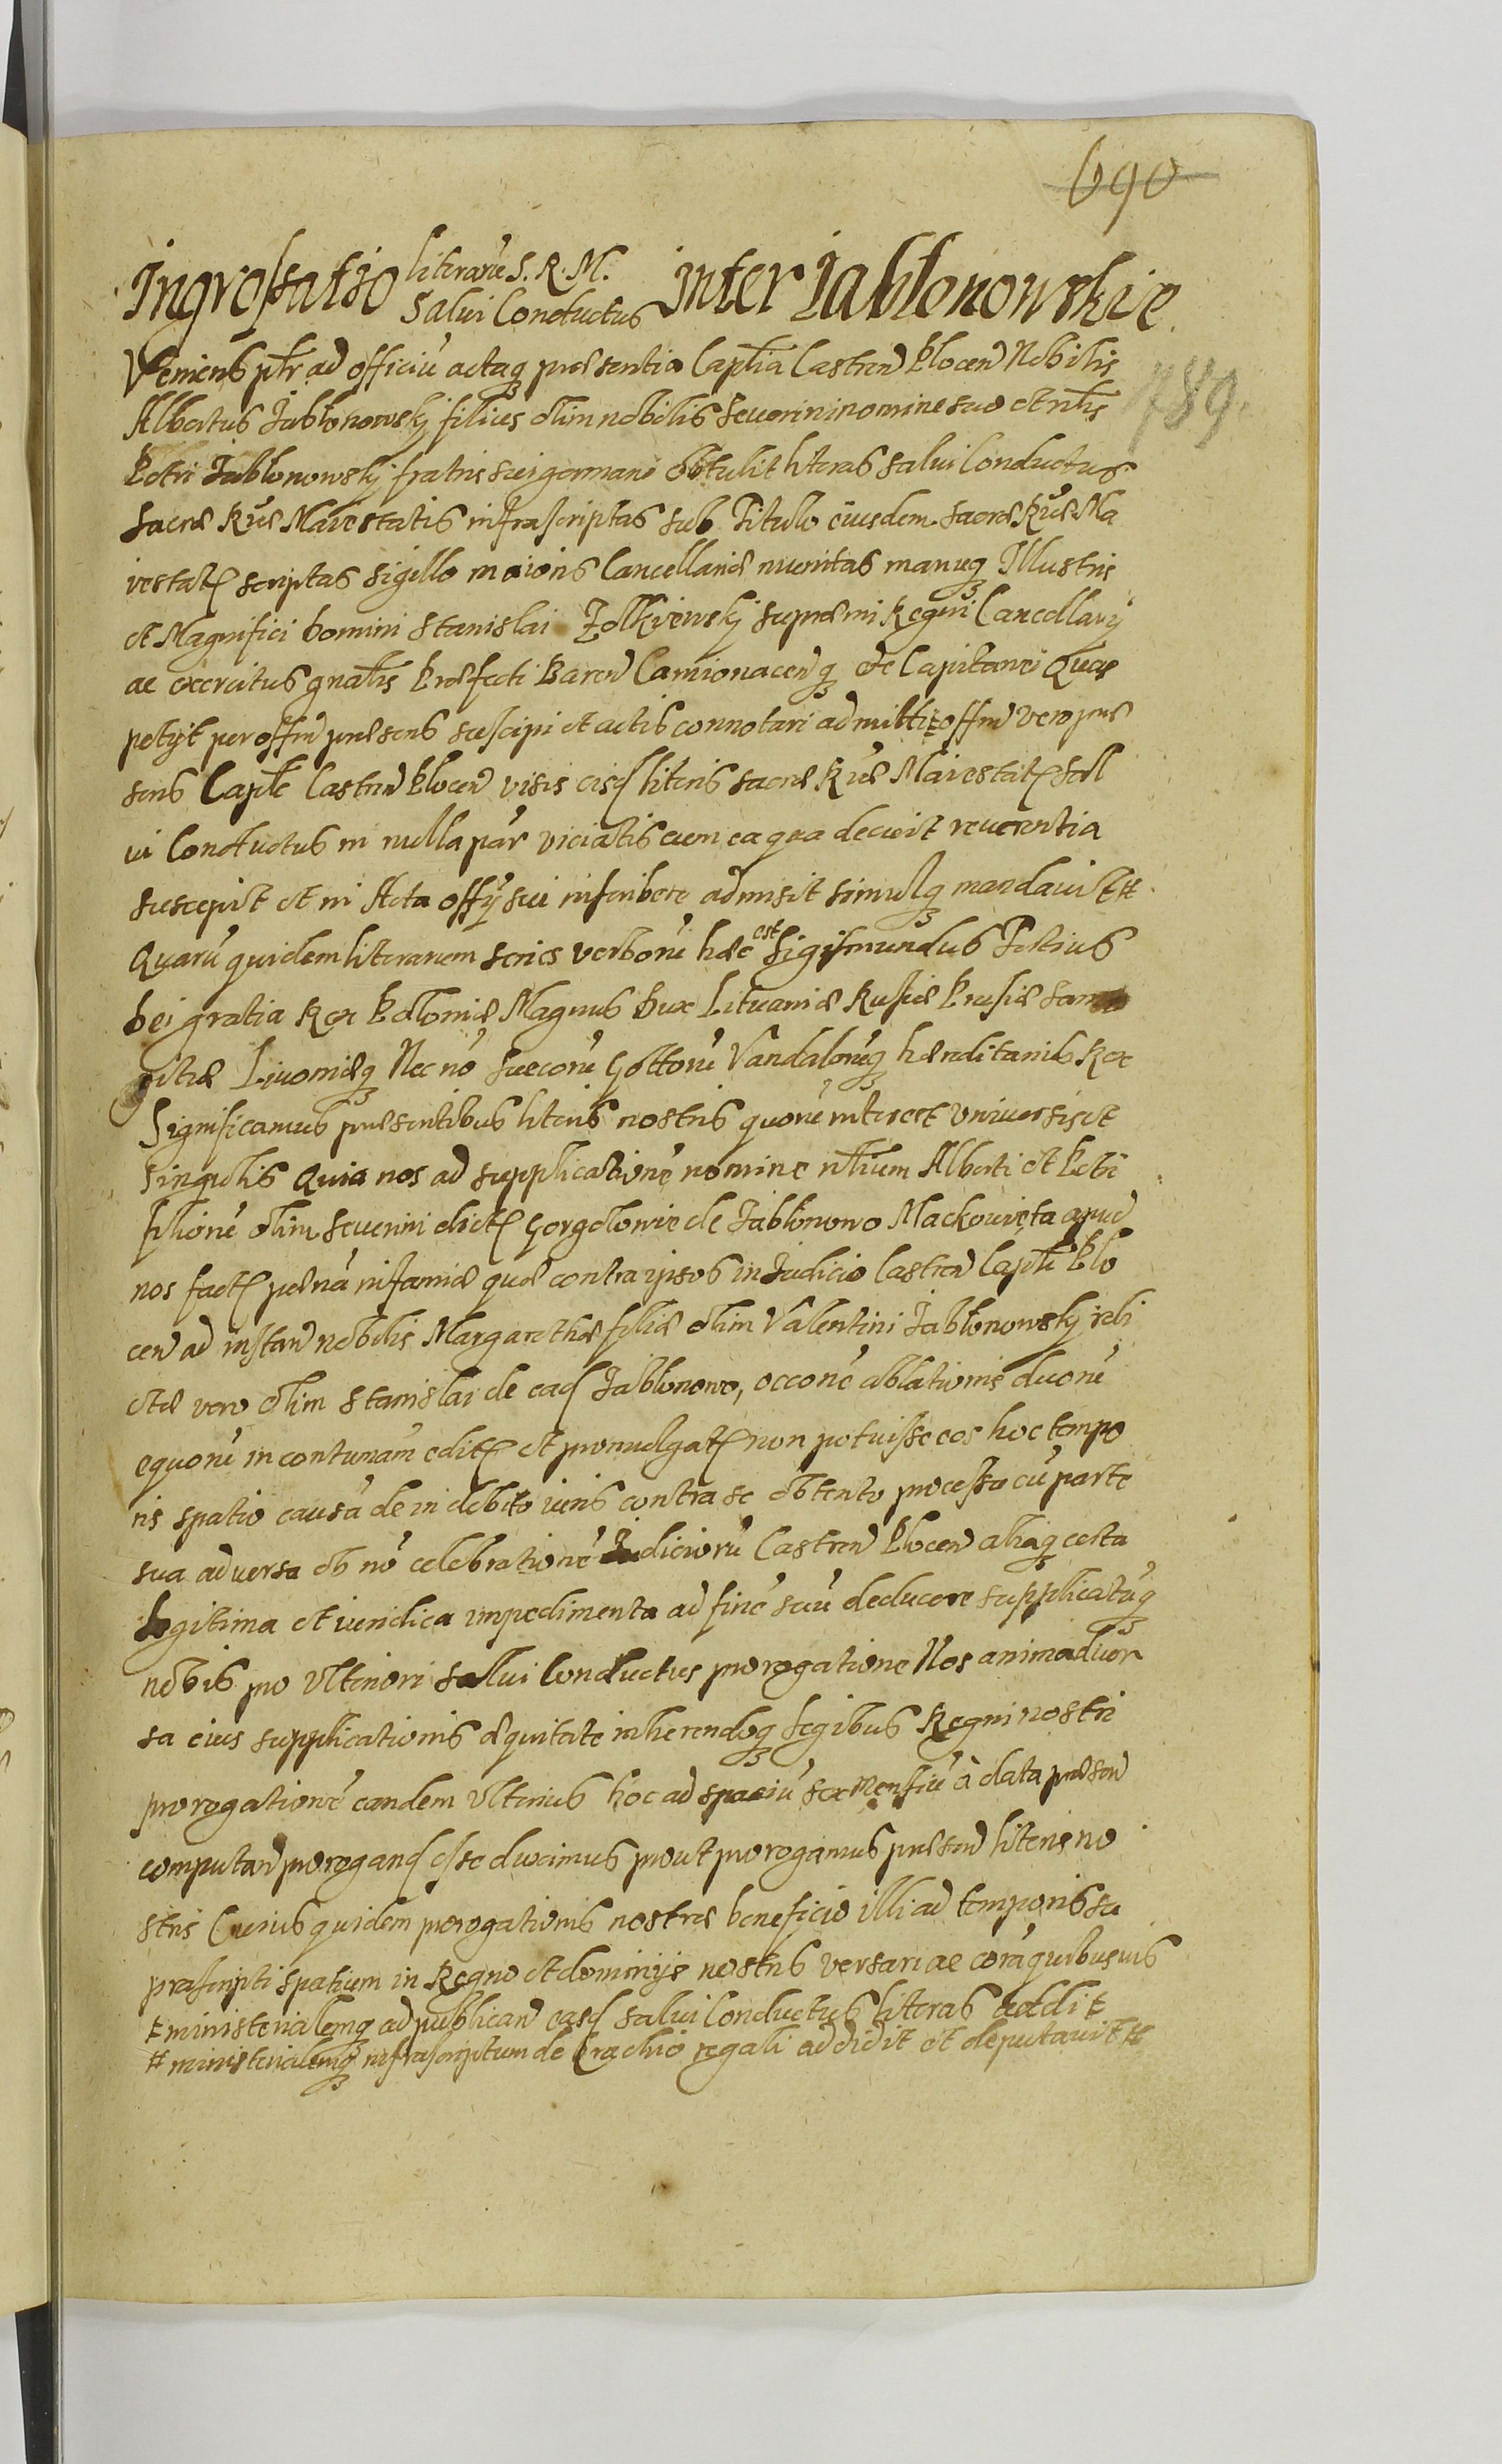 690
Ingrossatio literarū S. R. M. Salui Conductus inter Jabłonowskie
789.
Veniens pltr ad officiū actaq; præsentia Captlia Castren Plocen Nobilis
Albertus Jabłonowskij filius olim nobilis Seuerini nomine suo et nblis
Petri Jabłonowskij fratris sui germani obtulit literas salui Conductus
Sacræ Rgæ Maiestatis infrascriptas sub Titulo eiusdem Sacræ Rgæ Ma
iestatis scriptas sigillo maioris Cancellariæ munitas manuq; Illustris
et Magnifici Domini Stanislai Zołkiewskij supræmi Regni Cancellarij
ac exercitus gnalis Præfecti Baren Camionacenq; etc Capitanei Quas
petijt per offm præsens suscipi et actis connotari admitti offm vero præ
sens Captle Castren Plocen visis eisd literis Sacræ Rgæ Maiestatis sal
ui Conductus in nulla par viciatis cum ea qua decuit reuerentia
suscepit et in Acta offy sui inscribere admisit simulq; mandauit #
Quarū quidem literarum series verborū hæc est Sigismundus Tertius
Dei gratia Rex Poloniæ Magnus Dux Lituaniæ Russiæ Prussiæ Samo
gitiæ Liuoniæq; Nec nō Suecorū Gottorū Vandalorūq; hæreditarius Rex
Significamus præsentibus literis nostris quorū interest Vniuersis et
Singulis Quia nos ad supplicationē nomine nblium Alberti et Petri
filiorū olim Seuerini dictꝭ Gorgolowie de Jabłonowo Mackowięta apud
nos factꝭ pænā infamiæ quæ contra ipsos in Judicio Castren Captli Plo
cen ad instan nobilis Margarethæ filiæ olim Valentini Jabłonowskij reli
ctæ vero olim Stanislai de ead Jabłonowo, occonē ablationis duorū
equorū in contumam editꝭ et promulgatꝭ non potuisse eos hoc tempo
ris spatio causā de indebito iuris contra se obtento processu cū parte
sua aduersa ob nō celebrationē Judiciorū Castren Plocen aliaq; certa
legitima et iuridica impedimenta ad finē suū deducere supplicatūq;
nobis pro Vlteriori Salui Conductus prorogatione Nos animaduer
sa eius supplicationis æquitate inherendoq; legibus Regni nostri
prorogationē eandem Vlterius hoc ad spaciū sex Mensiū à data præsen
computan prorogand esse duximus prout prorogamus præsen literis no
stris Cuius quidem prorogationis nostræ beneficio illi ad temporis su
prascripti spatium in Regno et dominijs nostris versari ac corā quibusuis
# ministerialemq; ad publican easd Salui Conductus literas addit
# ministerialemq; infrascriptum de Crachio regali addidit et deputauit #